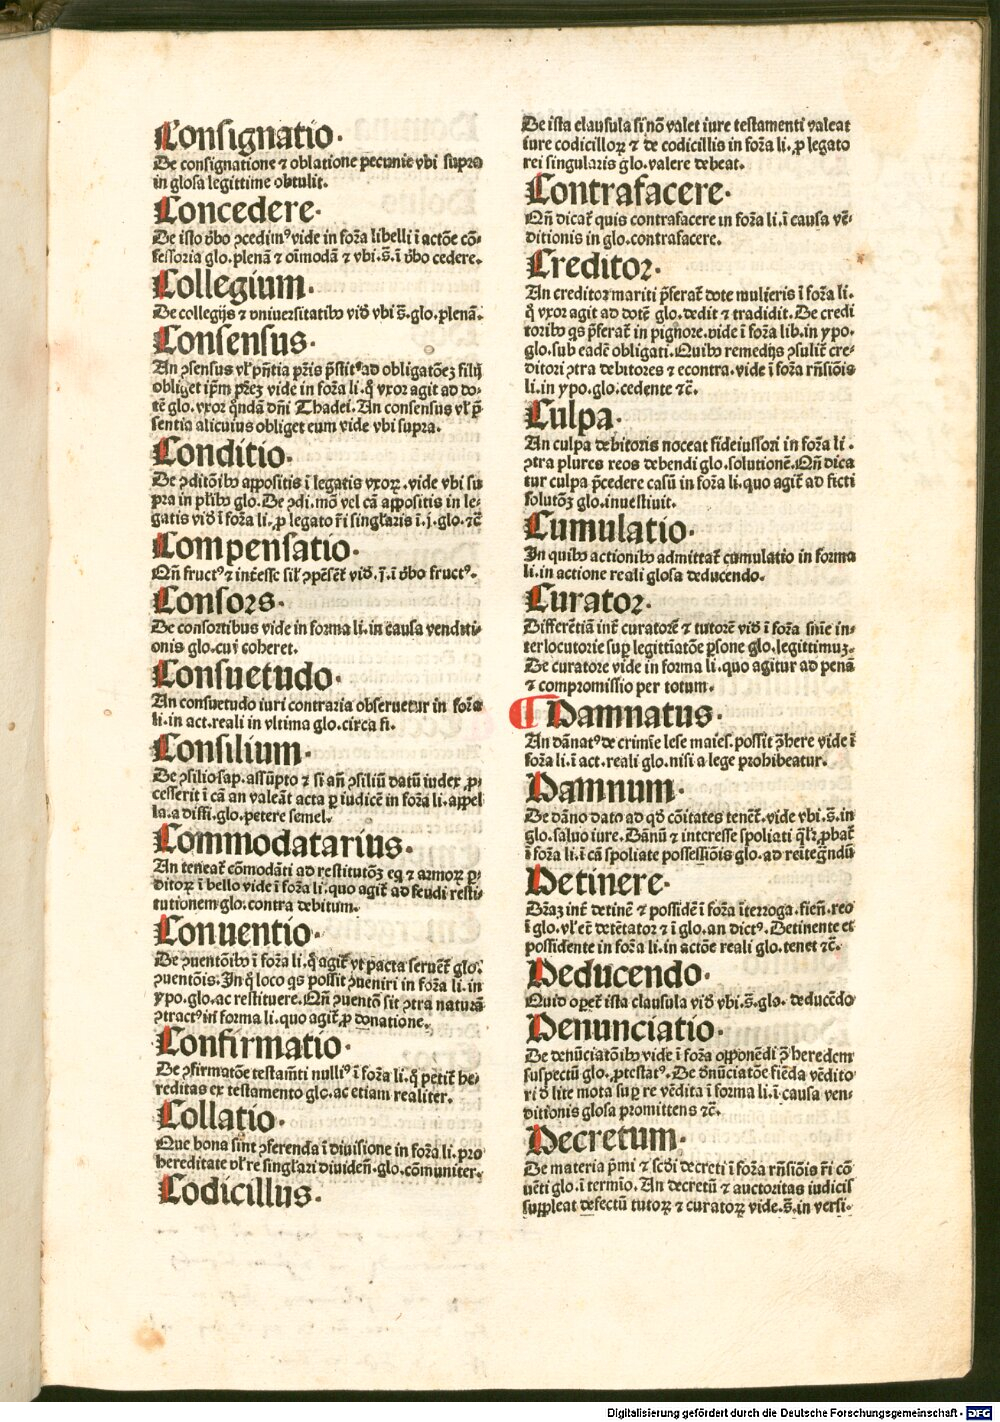 Consignatio.
De consignatione ⁊ oblatione pecunie vbi supra
in glosa legittime obtulit.
Concedere.
De isto v̄bo ꝯcedimꝰ vide in forꝛa libelli ī actōe cō-
fessoria glo. plenā ⁊ oīmodā ⁊ vbi. s̄. ī v̄bo cedere.
Collegium.
De collegijs ⁊ vniuersitatibꝰ vid̄ vbi s̄. glo. plenā.
Consensus.
An ꝯsensus vl̓ pn̄tia pr̄is p̄stitꝰ ad obligatōeꝫ filij
obliget ip̄m pr̄eꝫ vide in forꝛa li. q̄ vxor agit ad do-
tē glo. vxor q̄ndā dn̄i Thadei. An consensus vl̓ p̄
sentia alicuius obliget eum vide vbi supra.
Conditio.
De ꝯditōibꝰ appositis ī legatis vxoꝝ. vide vbi su
pra in pl̓ibꝰ glo. De ꝯdi. mō vel cā appositis in le-
gatis vid̄ ī forꝛa li. ꝓ legato r̄i singl̓aris ī. j. glo. ⁊c̄
Compensatio.
Qn̄ fructꝰ ⁊ int̓esse sil̓ ꝯpēset̄ vid̄. j̄. ī v̄bo fructꝰ.
Consors.
De consortibus vide in forma li. in causa venditi-
onis glo. cuj coheret.
Consuetudo.
An consuetudo iuri contraria obseruetur in forꝛa
li. in act. reali in vltima glo. circa fi.
Consilium.
De ꝯsilio sap. assūpto ⁊ si an̄ ꝯsiliū datū iudex ꝓ-
cesserit ī cā an valeāt acta ꝑ iudicē in forꝛa li. appel
la. a diffi. glo. petere semel.
Commodatarius.
An teneat̄ cōmodāti ad restitutōꝫ eq̄ ⁊ armoꝝ ꝑ-
ditoꝝ ī bello vide ī forꝛa li. quo agit̄ ad feudi resti-
tutionem glo. contra debitum.
Conuentio.
De ꝯuentōibꝰ ī forꝛa li. q̄ agit̄ vt pacta seruēt̄ glo.
ꝯuentōis. In q̄ loco qs possit ꝯueniri in forꝛa li. in
ypo. glo. ac restituere. Qn̄ ꝯuentō sit ꝯtra naturā
ꝯtractꝰ in forma li. quo agit̄ ꝓ donatione.
Confirmatio.
De ꝯfirmatōe testam̄ti nulliꝰ ī forꝛa li. q̄ petit̄ he-
reditas ex testamento glo. ac etiam realiter.
Collatio.
Que bona sint ꝯferenda ī diuisione in forꝛa li. pro
hereditate vl̓ re singl̓ari diuidēn. glo. cōmuniter.
Codicillus.
De ista clausula si nō valet iure testamenti valeat
iure codicilloꝝ ⁊ de codicillis in forꝛa li. ꝓ legato
rei singularis glo. valere debeat.
Contrafacere.
Qn̄ dicat̄ quis contrafacere in forꝛa li. ī causa vē-
ditionis in glo. contrafacere.
Creditor.
An creditor mariti p̄ferat̄ dote mulieris ī forꝛa li.
q̄ vxor agit ad dotē glo. dedit ⁊ tradidit. De credi
toribꝰ qs p̄ferat̄ in pignore. vide ī forꝛa lib. in ypo.
glo. sub eadē obligati. Quibꝰ remedijs ꝯsulit̄ cre-
ditori ꝯtra debitores ⁊ econtra. vide ī forꝛa rn̄siōis
li. in ypo. glo. cedente ⁊c̄.
Culpa.
An culpa debitoris noceat fideiussori in forꝛa li.
ꝯtra plures reos debendi glo. solutionē. Qn̄ dica
tur culpa p̄cedere casū in forꝛa li. quo agit̄ ad ficti
solutōꝫ glo. inuestiuit.
Cumulatio.
In quibꝰ actionibꝰ admittat̄ cumulatio in forma
li. in actione reali glosa deducendo.
Curator.
Differētiā int̄ curatorē ⁊ tutorē vid̄ ī forꝛa snīe in-
terlocutorie suꝑ legittiatōe ꝑsone glo. legittimuꝫ.
De curatore vide in forma li. quo agitur ad penā
⁊ compromissio per totum.
¶ Damnatus.
An dānatꝰ de crimīe lese maies. possit ꝓhere vide ī
forꝛa li. ī act. reali glo. nisi a lege prohibeatur.
Damnum.
De dāno dato ad qd̄ cōitates tenēt̄. vide vbi. s̄. in
glo. saluo iure. Dānū ⁊ interesse spoliati q̄lr̄ ꝓbat̄
ī forꝛa li. ī cā spoliate possessiōis glo. ad reitegrādū
Detinere.
Dr̄aꝫ int̄ detinē ⁊ possidē ī forꝛa īterroga. fien̄. reo
ī glo. vl̓ eēt detētator ⁊ ī glo. an dictꝰ. Detinente et
possidente in forꝛa li. in actōe reali glo. tenet ⁊c̄.
Deducendo.
Quid opet̄ ista clausula vid̄ vbi. s̄. glo. deducēdo
Denunciatio.
De denūciatōibꝰ vide ī forꝛa opponēdi ꝓ heredem
suspectū glo. ꝓtestatꝰ. De dn̄ūciatōe fiēda vēdito
ri d̄ lite mota suꝑ re vēdita ī forma li. ī causa ven-
ditionis glosa promittens ⁊c̄.
Decretum.
De materia p̄mi ⁊ scd̄i decreti ī forꝛa rn̄siōis r̄i cō
uēti glo. ī termīo. An decretū ⁊ auctoritas iudicis
suppleat defectū tutoꝝ ⁊ curatoꝝ vide. s̄. in versi.
Digitalisierung gefördert durch die Deutsche Forschungsgemeinschaft - DFG